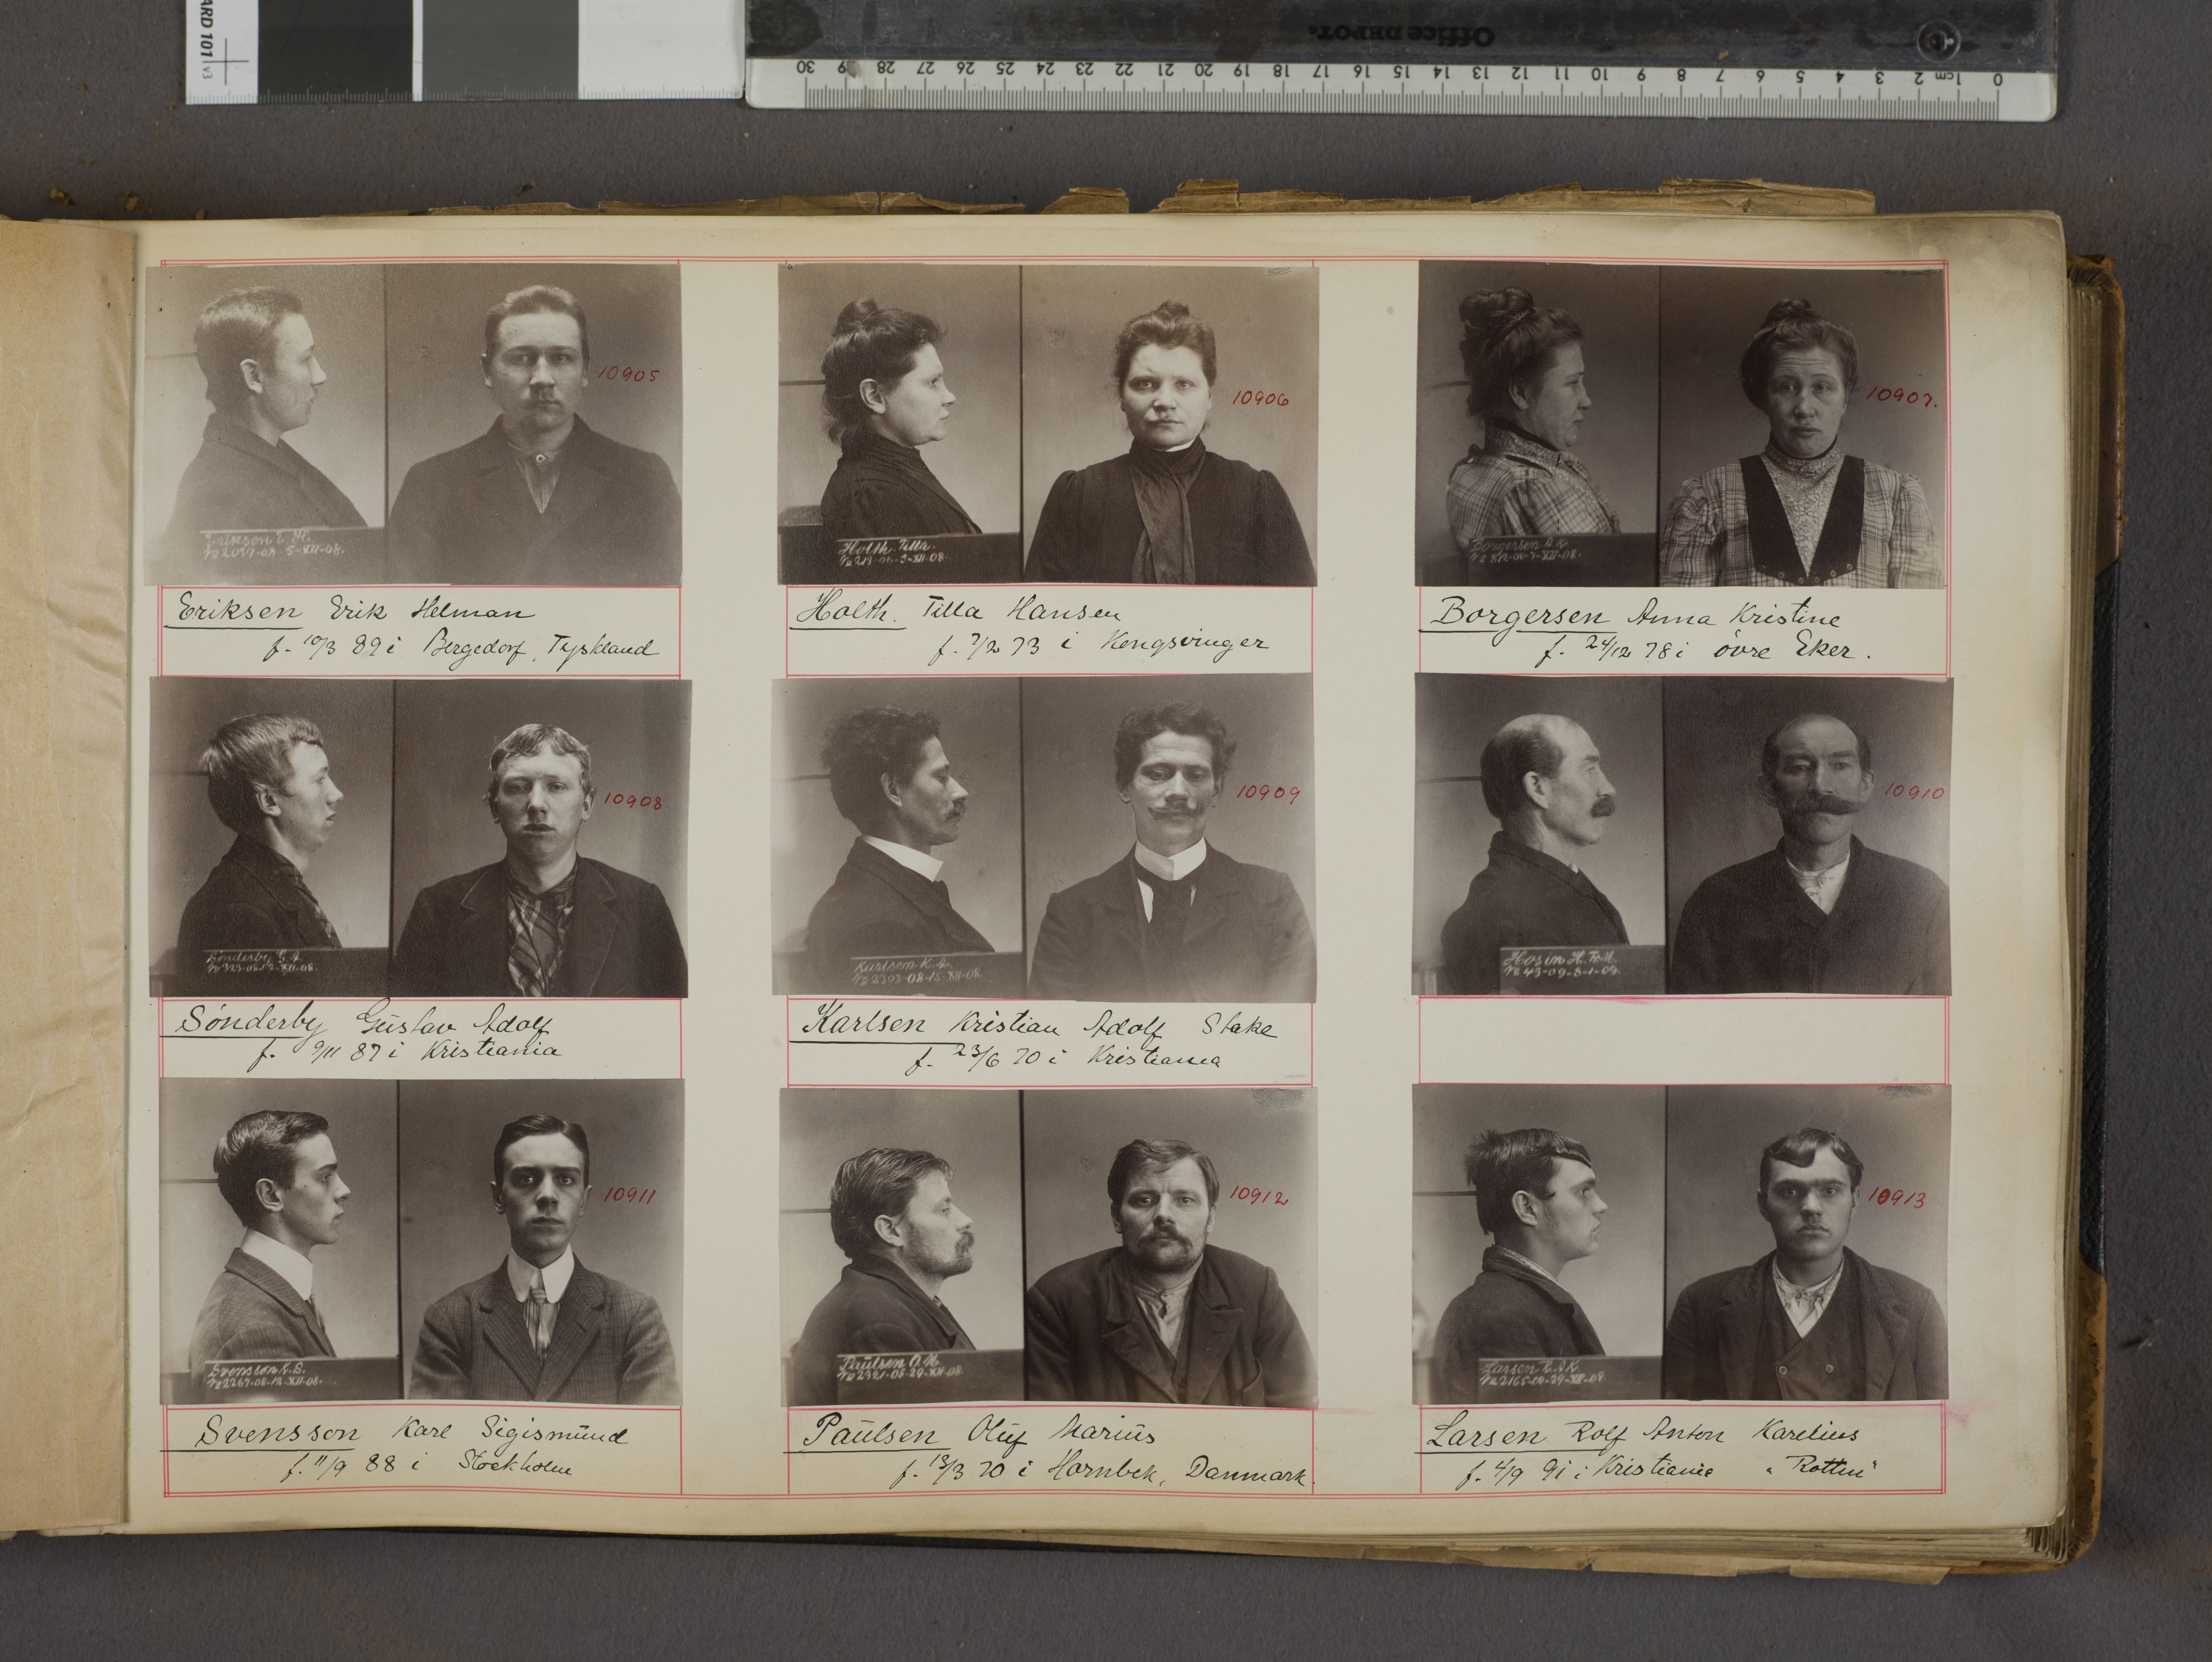 ARD 101 v3
Office DEPOT
0 1cm 2 3 4 5 6 7 8 9 10 11 12 13 14 15 16 17 18 19 20 21 22 23 24 25 26 27 28 29 30
10905
Eriksen E. H.
5-XII-08.
Eriksen Erik Helman
f. 10/3 89 i Bergedorf, Tyskland
10906
Holth. Tilla.
XII-08.
Holth. Tilla Hansen
f. 7/2 73 i Kongsvinger
10907.
Borgersen A. K.
XII-08.
Borgersen Anna Kristine
f. 24/12 78 i övre Eker.
10908
Sönderby G. A.
XII-08.
Sönderby Gustav Adolf
f. 9/11 87 i Kristiania
10909
Karlsen K. A.
№ 2303-08-15-XII-08.
Karlsen Kristian Adolf Stake
f. 23/6 70 i Kristiania
10910
№ 43-09-8-1-09.
10911
Svensson K. S.
№ 2267-08-12-XII-08.
Svensson Karl Sigismund
f. 11/9 88 i Stockholm
10912
Paulsen O. M.
№ 2321-08-29-XII-08.
Paulsen Oluf Marius
f. 13/3 70 i Hornbek, Danmark.
10913
Larsen R. A. K.
29-XII-08.
Larsen Rolf Anton Karelius
f. 4/9 91 i Kristiania "Rotten"